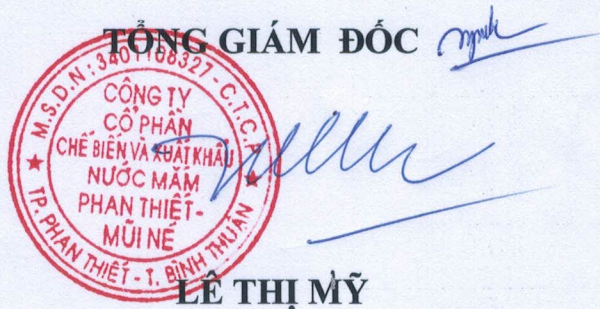 TỔNG GIÁM ĐỐC
M.S.D.N: 3401106327 - C.T.C.P
CÔNG TY
CỔ PHẦN
CHẾ BIẾN VÀ XUẤT KHẨU
NƯỚC MẮM
PHAN THIẾT -
MŨI NÉ
TP. PHAN THIẾT - T. BÌNH THUẬN
LÊ THỊ MỸ